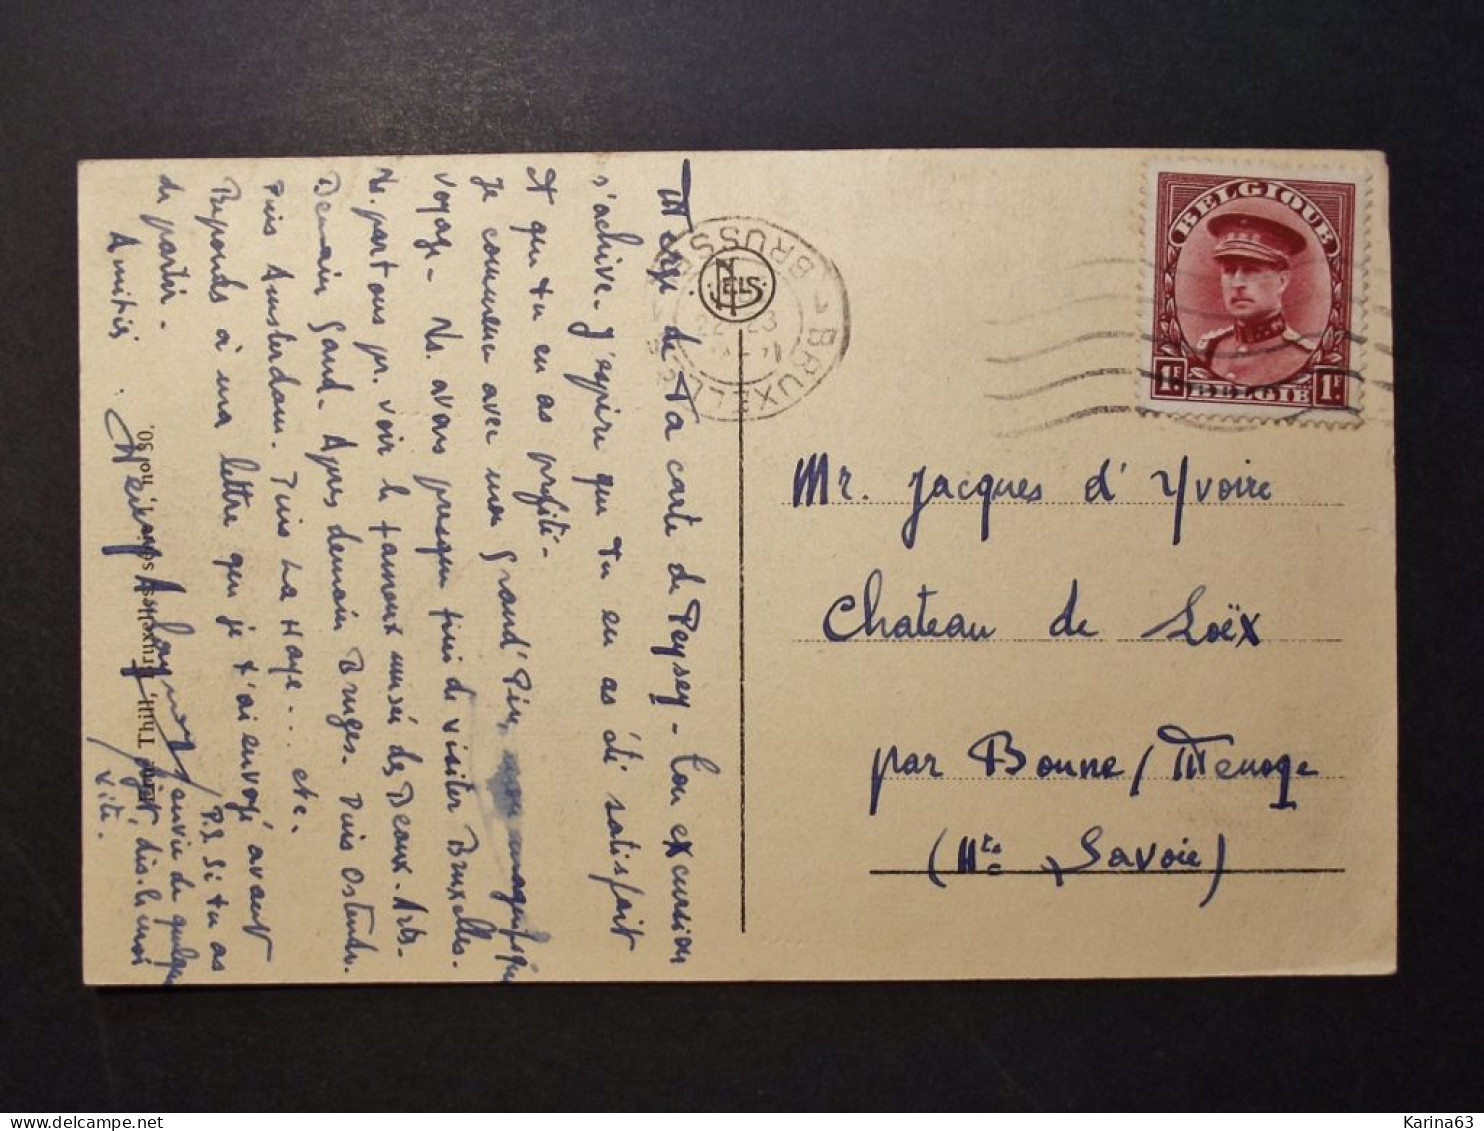 Merci de ta carte de Peysey - Ton excursion
s'achève. J'espère que tu en as été satisfait
et que tu en as profité -
Je commence avec mon Grand'Père, mon magnifique
voyage - Ns. avons presque fini de visiter Bruxelles.
Ns. partons pr. voir le fameux musée des Beaux-Arts.
Demain Gand. Après demain Bruges. Puis Ostende.
Puis Amsterdam. Puis La Haye... etc.
Réponds à ma lettre que je t'ai envoyé avant
de partir.
Amitiés.
P.S Si tu as
envie de quelque
objet, dis-le moi
vite.
Ern. Thill, Bruxelles
No. 30.
NELS
BRUXELLES
BRUSSEL
BELGIQUE
1F BELGIË 1F
Mr. Jacques d'Yvoire
Chateau de Loëx
par Bonne / Menoge
(Hte Savoie)
Karina63